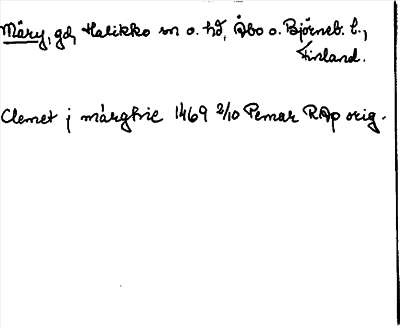 Märy, gd, Halikko sn o. hd, Åbo o. Björneb. l.,
Finland.
Clemet j märghie 1469 2/10 Pemar RAp orig.